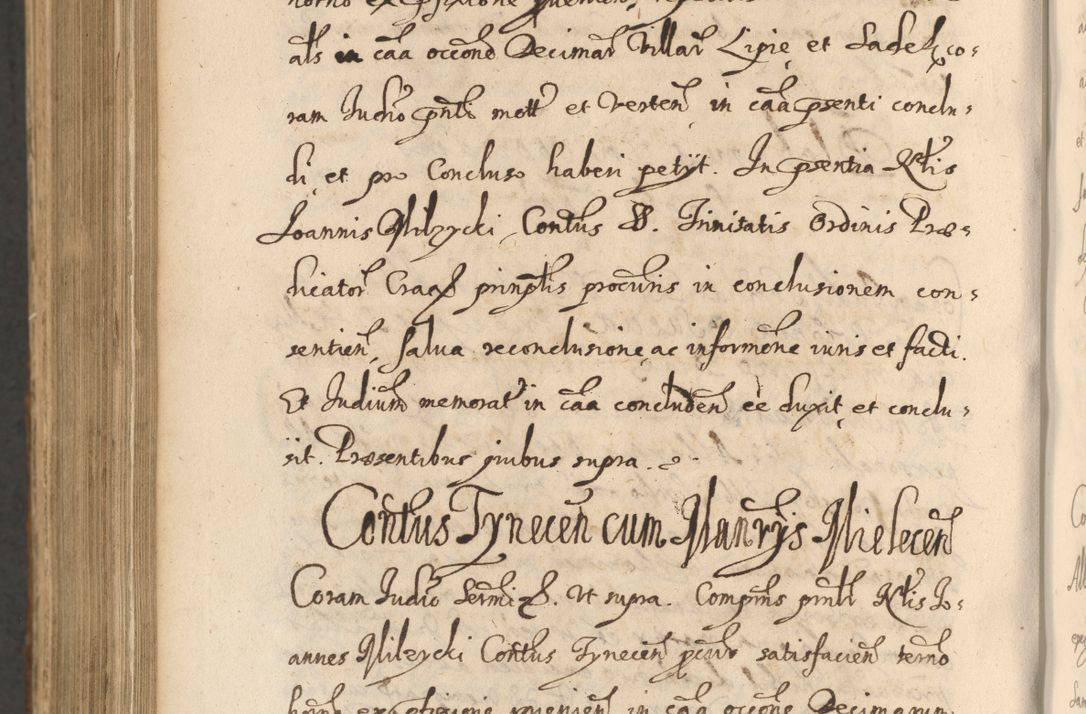 als in cãa occone Decimar Villar Lipie et Sadek co-
ram Judio pntl mott et Verten in cãa psenti conclu-
di et pro Concluso haberi petijt. In psentia Rtis
Joannis Milzycki Contus SS. Trinitatis Ordinis Præ-
dicator Crac prinptis procuris in conclusionem con-
sentien, salva reconclusione ac informone iuris et facti.
Et Judium memorat in cãa concluden ee duxit et conclu-
sit. Præsentibus quibus supra.
Contus Tynecen cum Manrijs Mielecen
Coram Judio Sermi. Ut supra. Compns pntl Rtis Jo-
annes Milzycki Contus Tynecen pcur satisfacien termo
in cãa occone Decimarum